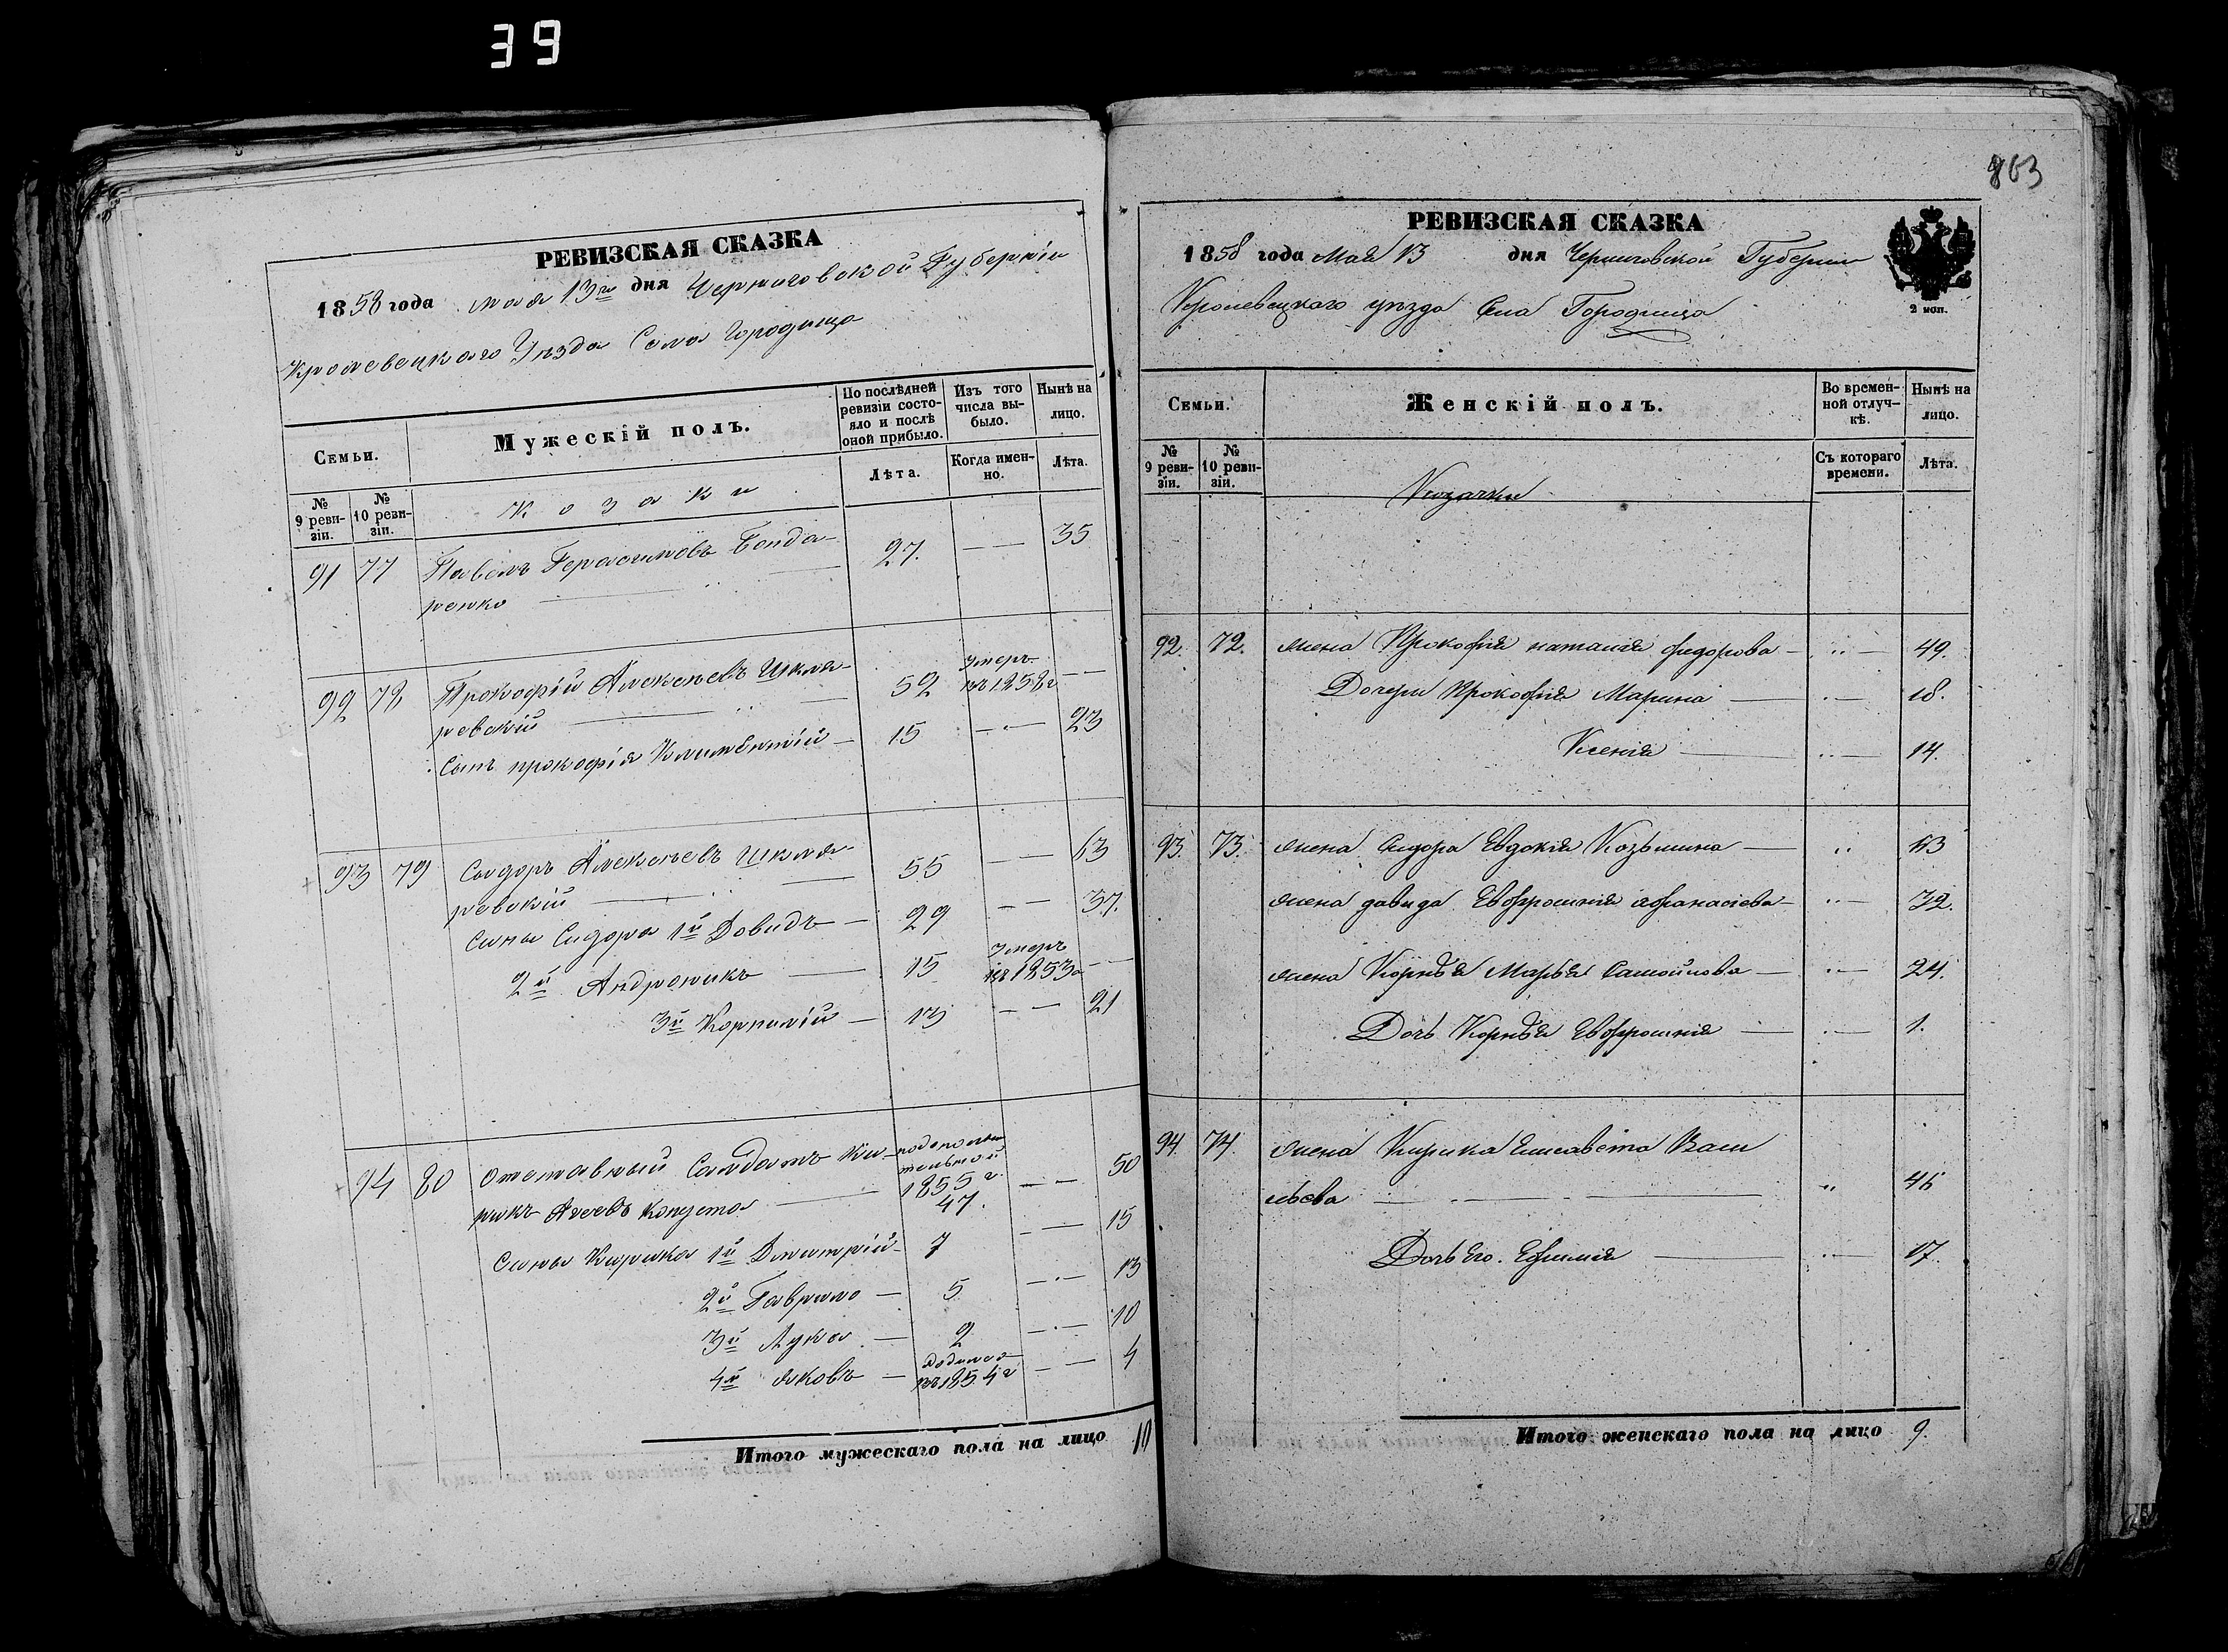 39
РЕВИЗСКАЯ СКАЗКА
1858 года мая 13го дня Черниговской Губерніи
Кролевецкаго Уѣзда Села Городища
Семьи.
Мужескій полъ.
По послѣдней ревизіи состояло и послѣ оной прибыло.
Изъ того числа выбыло.
Нынѣ на лицо.
№ 9 ревизіи.
№ 10 ревизіи.
Козаки
Лѣта.
Когда именно.
Лѣта.
91 77 Павелъ Герасимовъ Бонда- 27. — — 35
ренко
92 78 Прокофій Алексѣевъ Шкля- 52 Умеръ въ 1858 г — —
ревскій
Сынъ прокофія Климентій — 15 — — 23
93 79 Сидоръ Алексѣевъ Шкля- 55 — — 63
ревскій
Сины Сидора 1й Довидъ — 29 — — 37.
2й Андроникъ — 15 Умеръ въ 1853 г — —
3й Корнилій — 13 — — 21
94 80 Отставный Салдатъ Ки- 1855 г. 47. — — 50
рикъ Агеевъ Копуста
Сины Кирика 1й Дмитрій — 7 — — 15
2й Гаврило — 5 — — 13
3й Лука — 2 — — 10
4й Яковъ — родился въ 1854 г — — 4
Итого мужескаго пола на лицо 10
863
РЕВИЗСКАЯ СКАЗКА
1858 года Мая 13 дня Черниговской Губерніи
Кролевецкаго уѣзда Села Городища
2 коп.
Семьи.
Женскій полъ.
Во временной отлучкѣ.
Нынѣ на лицо.
№ 9 ревизіи.
№ 10 ревизіи.
Козачки
Съ котораго времени.
Лѣта.
92. 72. жена Прокофія наталія федорова — 49.
Дочери Прокофія Марина — 18.
Ксенія — 14.
93. 73. жена Сидора Евдокія Козьмина — 63
жена давида Евфросинія афанасіева — 32.
жена Корнѣя Марѣя Самойлова — 24.
Дочь Корнѣя Евфросинія — 1.
94. 74. жена Кирика Елисавета Васи
льева — 46
Дочь Его. Ефимія — 17.
Итого женскаго пола на лицо 9.